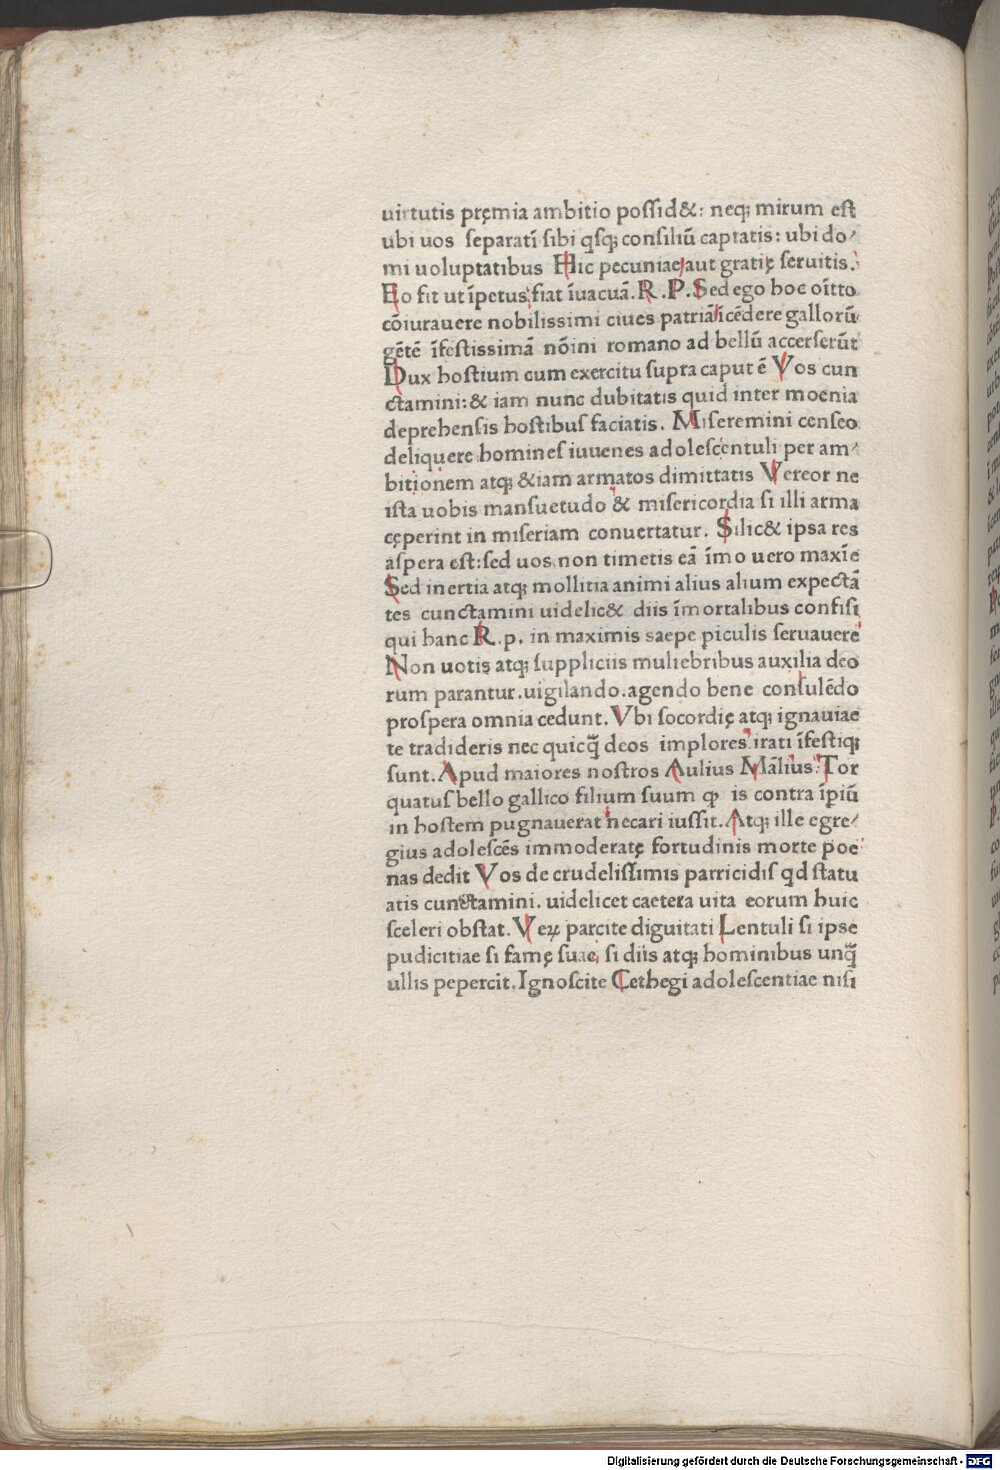 uirtutis pręmia ambitio poſſid&: neqꝫ mirum eſt
ubi uos ſeparatī ſibi qſqꝫ conſiliū captatis: ubi do/
mi uoluptatibus Hic pecuniae aut gratię ſeruitis.
Eo fit ut īpetus fiat īuacuā. R. P. Sed ego hoc oītto
cōiurauere nobiliſſimi ciues patriā īcēdere gallorū
gētē īfeſtiſſimā nōini romano ad bellū accerſerūt
Dux hoſtium cum exercitu ſupra caput ē Vos cun
ctamini: & iam nunc dubitatis quid inter moenia
deprehenſis hoſtibus faciatis. Miſeremini cenſeo
deliquere homineſ iuuenes adoleſcentuli per am/
bitionem atqꝫ &iam armatos dimittatis Vereor ne
iſta uobis manſuetudo & miſericordia ſi illi arma
cęperint in miſeriam conuertatur. Silic& ipsa res
aſpera eſt: ſed uos non timetis eā īmo uero maxīe
Sed inertia atqꝫ mollitia animi alius alium expectā
tes cunctamini uidelic& diis īmortalibus confiſi
qui hanc R. p. in maximis saepe piculis ſeruauere
Non uotis atqꝫ ſuppliciis muliebribus auxilia deo
rum parantur. uigilando. agendo bene conſulēdo
proſpera omnia cedunt. Vbi ſocordię atqꝫ ignauiae
te tradideris nec quicq̄ deos implores irati īfeſtiqꝫ
ſunt. Apud maiores noſtros Aulius Māliuſ Tor
quatuſ bello gallico filium ſuum ꝙ is contra īpiū
in hoſtem pugnauerat necari iuſſit. Atqꝫ ille egre/
gius adoleſcēs immoderatę fortudinis morte poe
nas dedit Vos de crudeliſſimis parricidiſ qd ſtatu
atis cunctamini. uidelicet caetera uita eorum huic
ſceleri obſtat. Veꝝ parcite diguitati Lentuli ſi ipse
pudicitiae ſi famę ſuae, ſi diis atqꝫ hominibus unq̄
ullis pepercit. Ignoſcite Cethegi adoleſcentiae niſi
Digitalisierung gefördert durch die Deutsche Forschungsgemeinschaft - DFG